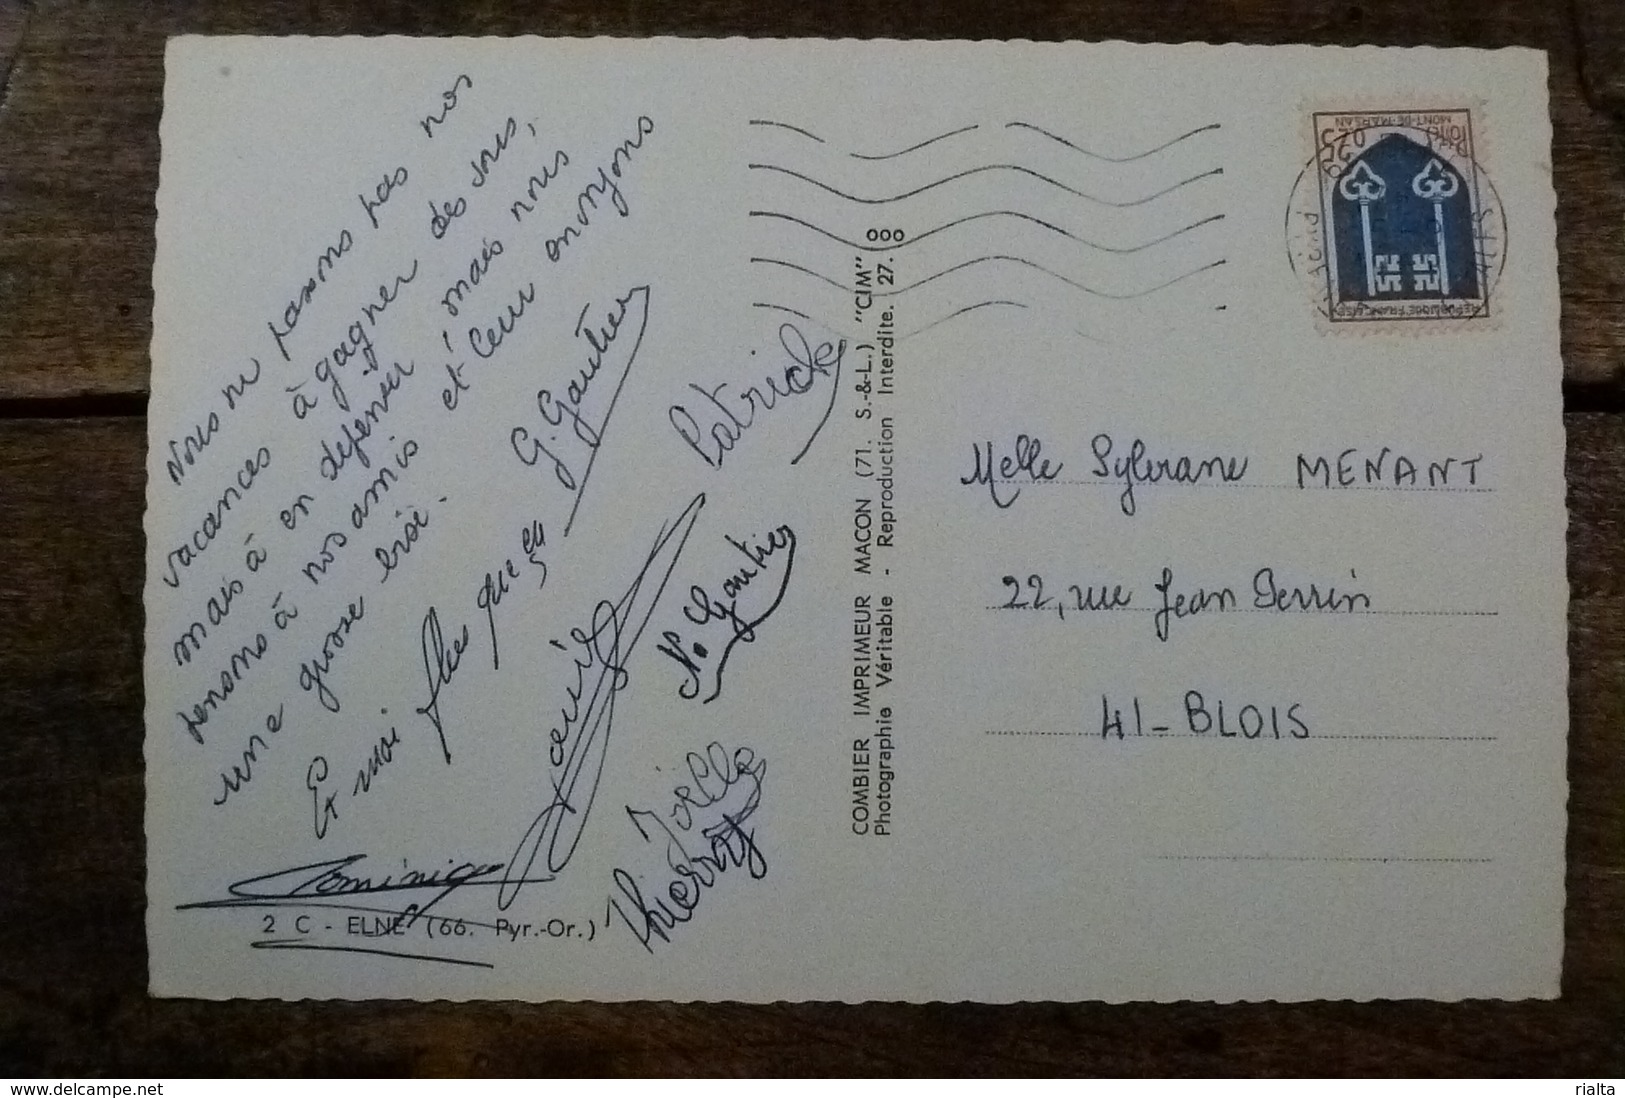 Nous ne passons pas nos
vacances à gagner des sous,
mais à en dépenser, mais nous
pensons à nos amis et leur envoyons
une grosse bise.
G. Gautier
Et moi
Patrick
N. Gautier
Joëlle
Thierry
Dominique
2 C - ELNE (66. Pyr.-Or.)
COMBIER IMPRIMEUR MACON (71. S.-&-L.) "CIM"
Photographie Véritable - Reproduction Interdite. 27.
000
REPUBLIQUE FRANÇAISE
0,25
MONT-DE-MARSAN
Melle Sylviane MENANT
22, rue Jean Perrin
41 - BLOIS
www.delcampe.net
rialta